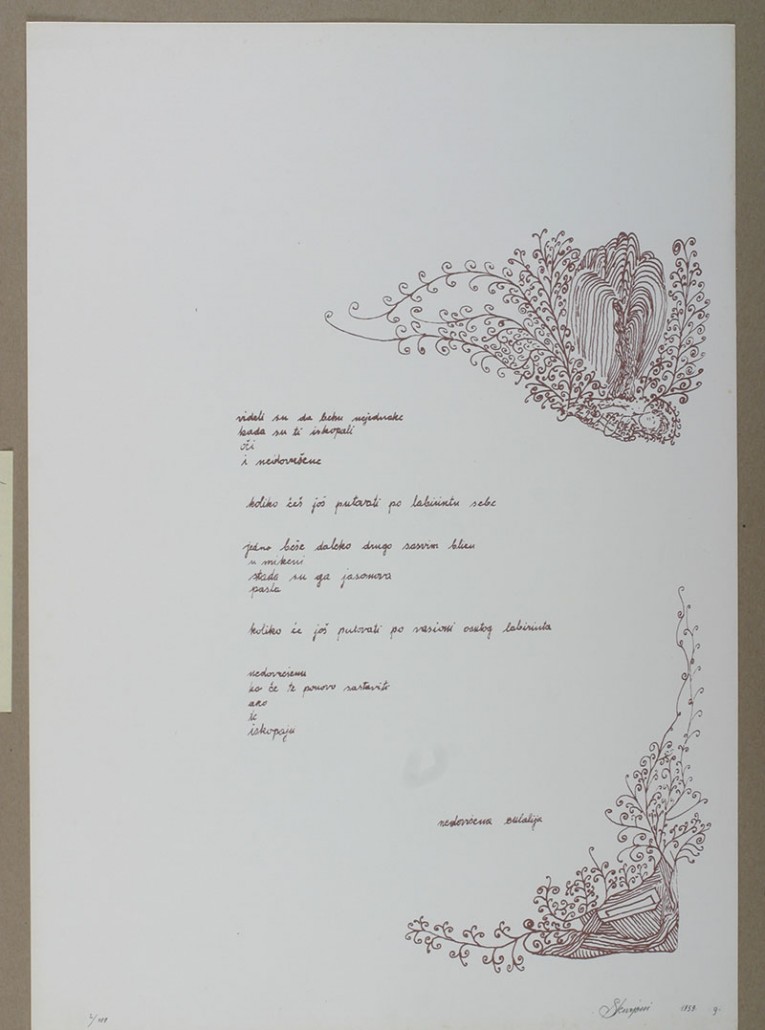 videli su da behu nejednake
kada su ti iskopali
oči
i nedovršene
koliko ćeš još putovati po labirintu sebe
jedno beše daleko drugo sasvim blizu
u mikeni
stada su ga jasonova
pasla
koliko će još putovati po vasioni osutog labirinta
nedovršenu
ko će te ponovo sastaviti
ako
te
iskopaju
nedovršena eulalija